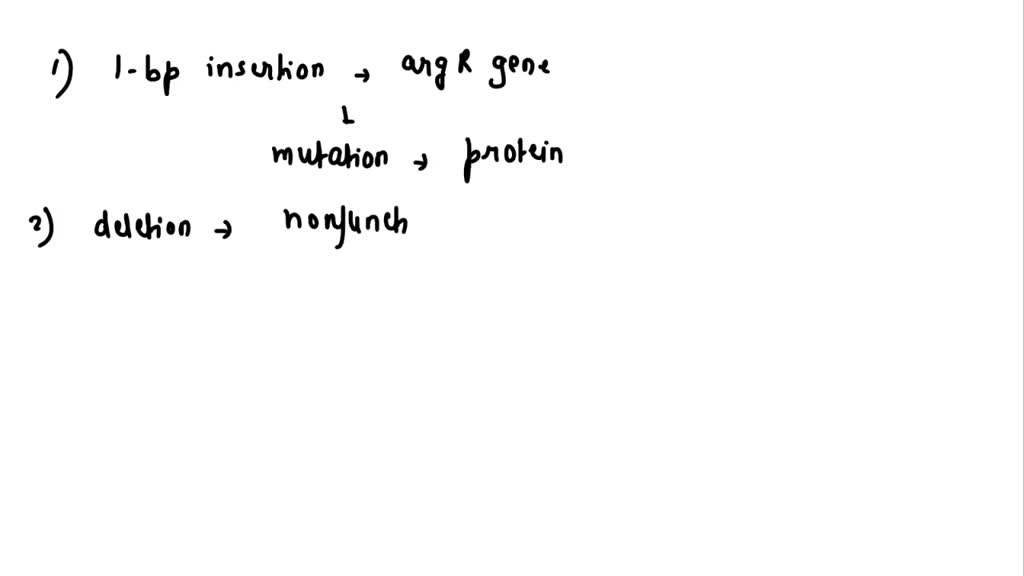 1) 1-bp insertion → argR gene
↓
mutation → protein
2) deletion → nonfunch